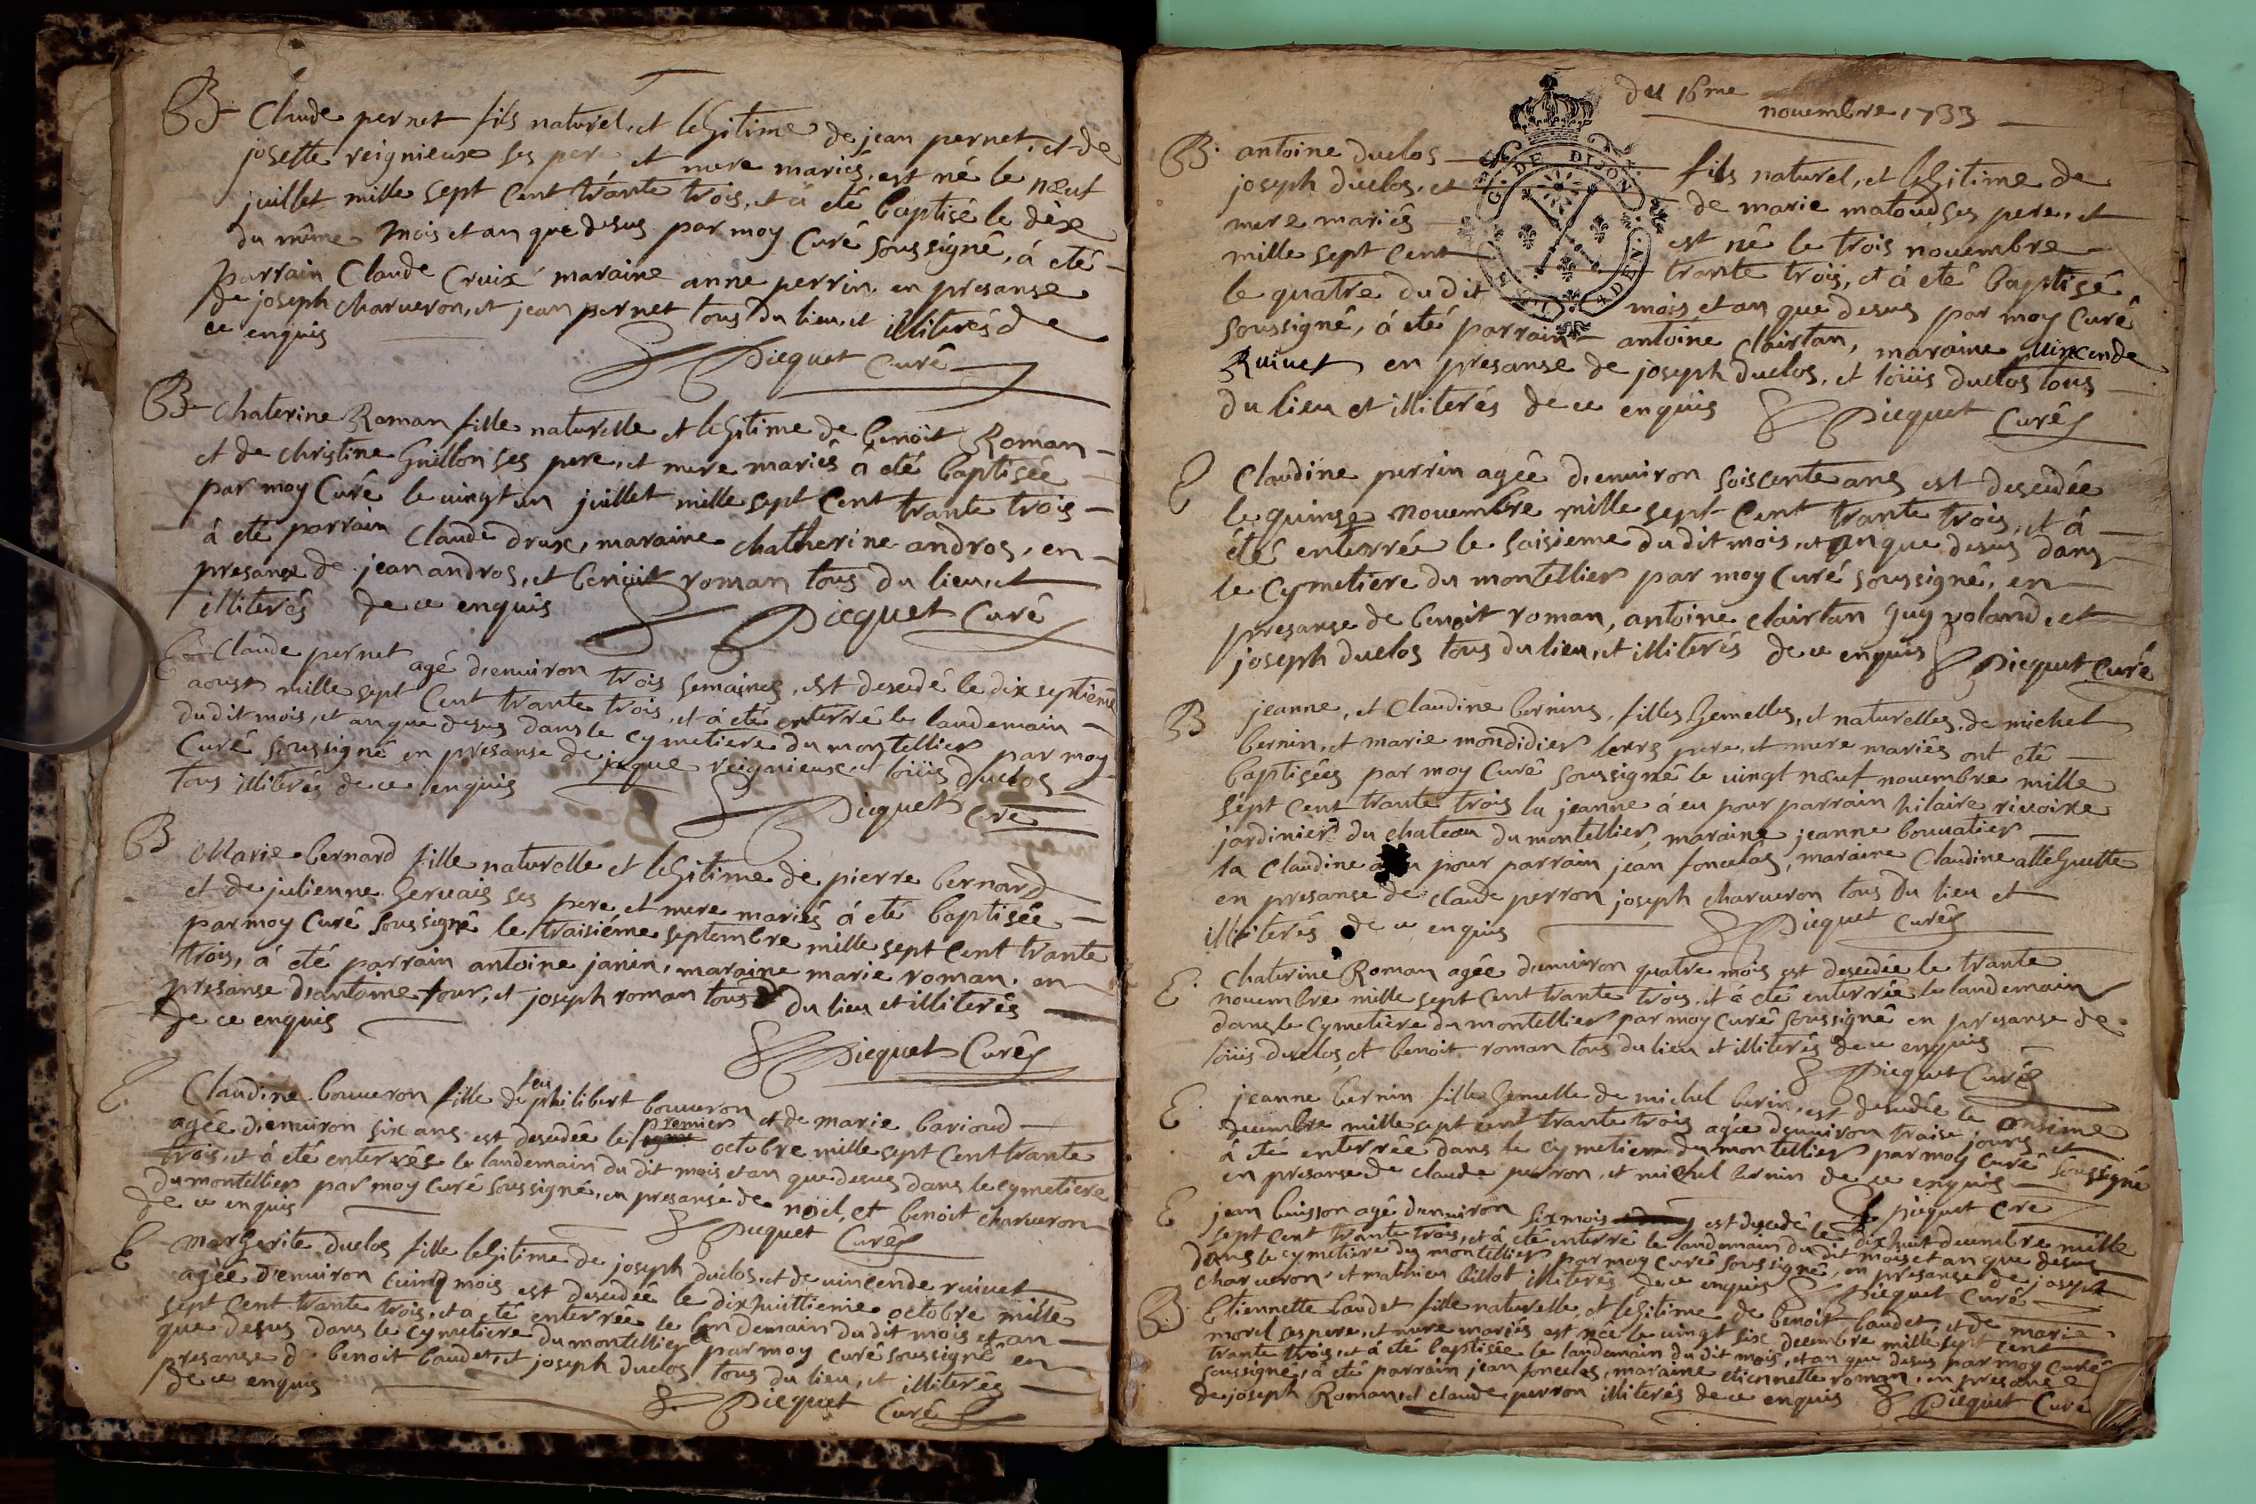 B Claude pernet fils naturel, et legitime de jean pernet, et de
josette reignieux ses pere et mere mariés, est né le nœuf
juillet mille sept cent trante trois, et á eté baptisé le dèxe
du même mois et an que desus par moy Curé soussigné, á eté
parrain Claude Cruix maraine anne perrin en presanse
de joseph charueron, et jean pernet tous du lieu, et illiterés de
ce enquis
Picquet Curé
B Chaterine Roman fille naturelle et legitime de benoit Roman
et de christine Guillon ses pere, et mere mariés á eté baptisée
par moy Curé le uingt un juillet mille sept Cent trante trois
á eté parrain Claude drux, maraine chatherine andros, en
presanse de jean andros, et benoit roman tous du lieu, et
illiterés de ce enquis Picquet Curé
E Claude pernet agé d'enuiron trois semaines, est decedé le dix septieme
aoust mille sept Cent trante trois, et á eté enterré le landemain
du dit mois, et an que desus dans le cymetiere du montellier par moy
Curé soussigné en presanse de jaque reignieux, et loüis duclos
tous illiterés de ce enquis Picquet Cre
B Marie bernard fille naturelle et legitime de pierre bernard
et de julienne Geruais ses pere, et mere mariés á eté baptisée
par moy Curé soussigné le traisiéme septembre mille sept Cent trante
trois, á eté parrain antoine janin, maraine marie roman, en
presanse d'antoine four, et joseph roman tous du lieu et illiterés
de ce enquis
Picquet Curé
E. Claudine bouueron fille de feu philibert bouueron et de marie barioud
agée d'enuiron six ans est decedée le premier octobre mille sept Cent trante
trois, et á eté enterrée le landemain du dit mois et an que desus dans le cymetiere
du montellier par moy Curé soussigné, en presanse de noël, et benoit charueron
de ce enquis Picquet Curé
E Margerite duclos fille legitime de joseph duclos, et de uincende ruiuet
agée d'enuiron cuinq mois est decedée le dixhuittieme octobre mille
sept cent trante trois, et a eté enterrée le landemain du dit mois et an
que desus dans le cymetiere du montellier par moy curé soussigné en
presanse de benoit baudet, et joseph duclos tous du lieu, et illiterés
de ce enquis Picquet Curé
du 16me
nouembre 1733
GE. DE DIJON
B. antoine duclos fils naturel, et legitime de
joseph duclos, et de marie matoud ses pere, et
mere mariés est né le trois nouembre
mille sept cent trante trois, et á eté baptisé
le quatre du dit mois et an que desus par moy Curé
soussigné, á eté parrain antoine clairtan, maraine uincende
Ruiuet en presanse de joseph duclos, et loüis duclos tous
du lieu et illiterés de ce enquis Picquet Curé
E Claudine perrin agée d'enuiron soiscente ans est decedée
le quinse nouembre mille sept Cent trante trois, et á
étés enterrée le saisieme du dit mois, et an que desus dans
le Cymetiere du montellier par moy Curé soussigné, en
presanse de benoit roman, antoine clairtan guy voland, et
joseph duclos tous du lieu, et illiterés de ce enquis Picquet Curé
B jeanne, et Claudine bernins, filles Gemelles, et naturelles, de michel
bernin, et marie mondidier leurs pere, et mere mariés ont eté
baptisées par moy Curé soussigné le uingt nœuf nouembre mille
sept cent trante trois la jeanne á eu pour parrain hilaire riuoire
jardinier du chateau du montellier, maraine jeanne bouuatier
la Claudine pour parrain jean foncelas, maraine Claudine alleguette
en presanse de claude perron joseph charueron tous du lieu et
illiterés de ce enquis Picquet Curé
E. Chaterine Roman agée d'enuiron quatre mois est decedée le trante
nouembre mille sept cent trante trois, et á eté enterrée le landemain
dans le cymetiere du montellier par moy curé soussigné en presanse de
loüis duclos, et benoit roman tous du lieu et illiterés de ce enquis
Picquet Curé
E. jeanne bernin fille gemelle de michel berin, est decedée le onsieme
decembre mille sept cent trante trois agée d'enuiron traise jours, et
á eté enterrée dans le cymetiere du montellier par moy Curé soussigné
en presanse de claude perron, et michel bernin de ce enquis
Picquet Cre
E jean buisson agé d'enuiron six mois est decedé le dix huit decembre mille
sept cent trante trois, et á eté enterré le landemain du dit mois et an que desus
dans le cymetiere du montellier par moy curé soussigné, en presanse de joseph
charueron et mathieu billot illiterés de ce enquis Picquet Curé
B. Etiennette baudet fille naturelle, et legitime de benoit baudet, et de marie
morel ses pere, et mere mariés est née le uingt six decembre mille sept cent
trante trois, et á été baptisée le landemain du dit mois, et an que desus par moy curé
soussigné, á eté parrain jean foncelas, maraine etiennette roman, en presanse
de joseph Roman, et claude perron illiterés de ce enquis Picquet Curé